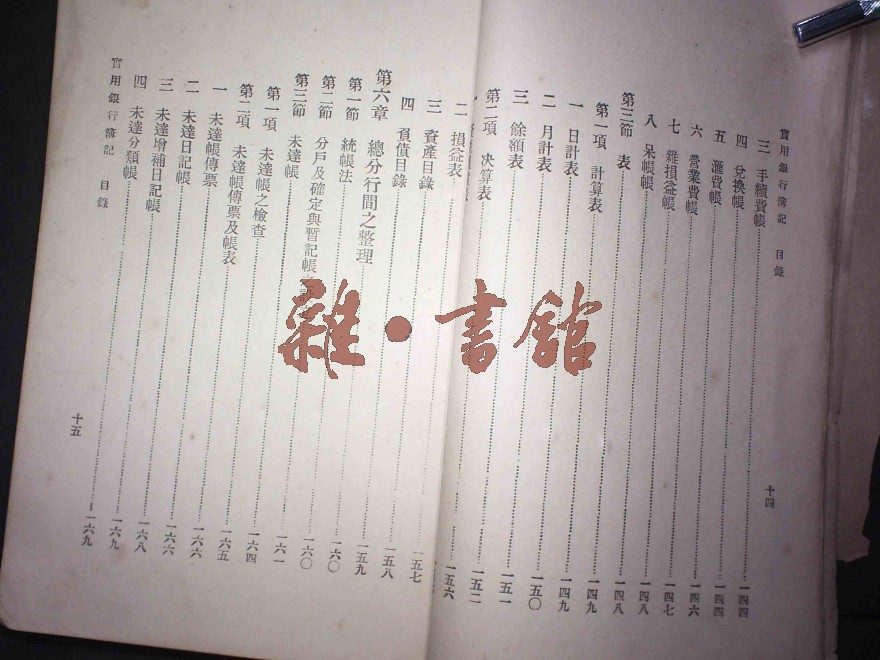 實用銀行簿記 目錄
三 手續費帳 一四四
四 兌換帳 一四四
五 滙費帳 一四四
六 營業費帳 一四六
七 雜損益帳 一四七
八 呆帳帳 一四八
第三節 表 一四八
第一項 計算表 一四九
一 日計表 一四九
二 月計表 一五〇
三 餘額表 一五一
第二項 决算表 一五二
十四
二 損益表 一五六
三 資產目錄 一五七
四 負債目錄 一五八
第六章 總分行間之整理 一五九
第一節 統帳法 一六〇
第二節 分戶及確定與暫記帳 一六〇
第三節 未達帳 一六一
第一項 未達帳之檢查 一六四
第二項 未達帳傳票及帳表 一六五
一 未達帳傳票 一六六
二 未達日記帳 一六六
三 未達增補日記帳 一六八
四 未達分類帳 一六九
實用銀行簿記 目錄 一六九
十五
雜•書館